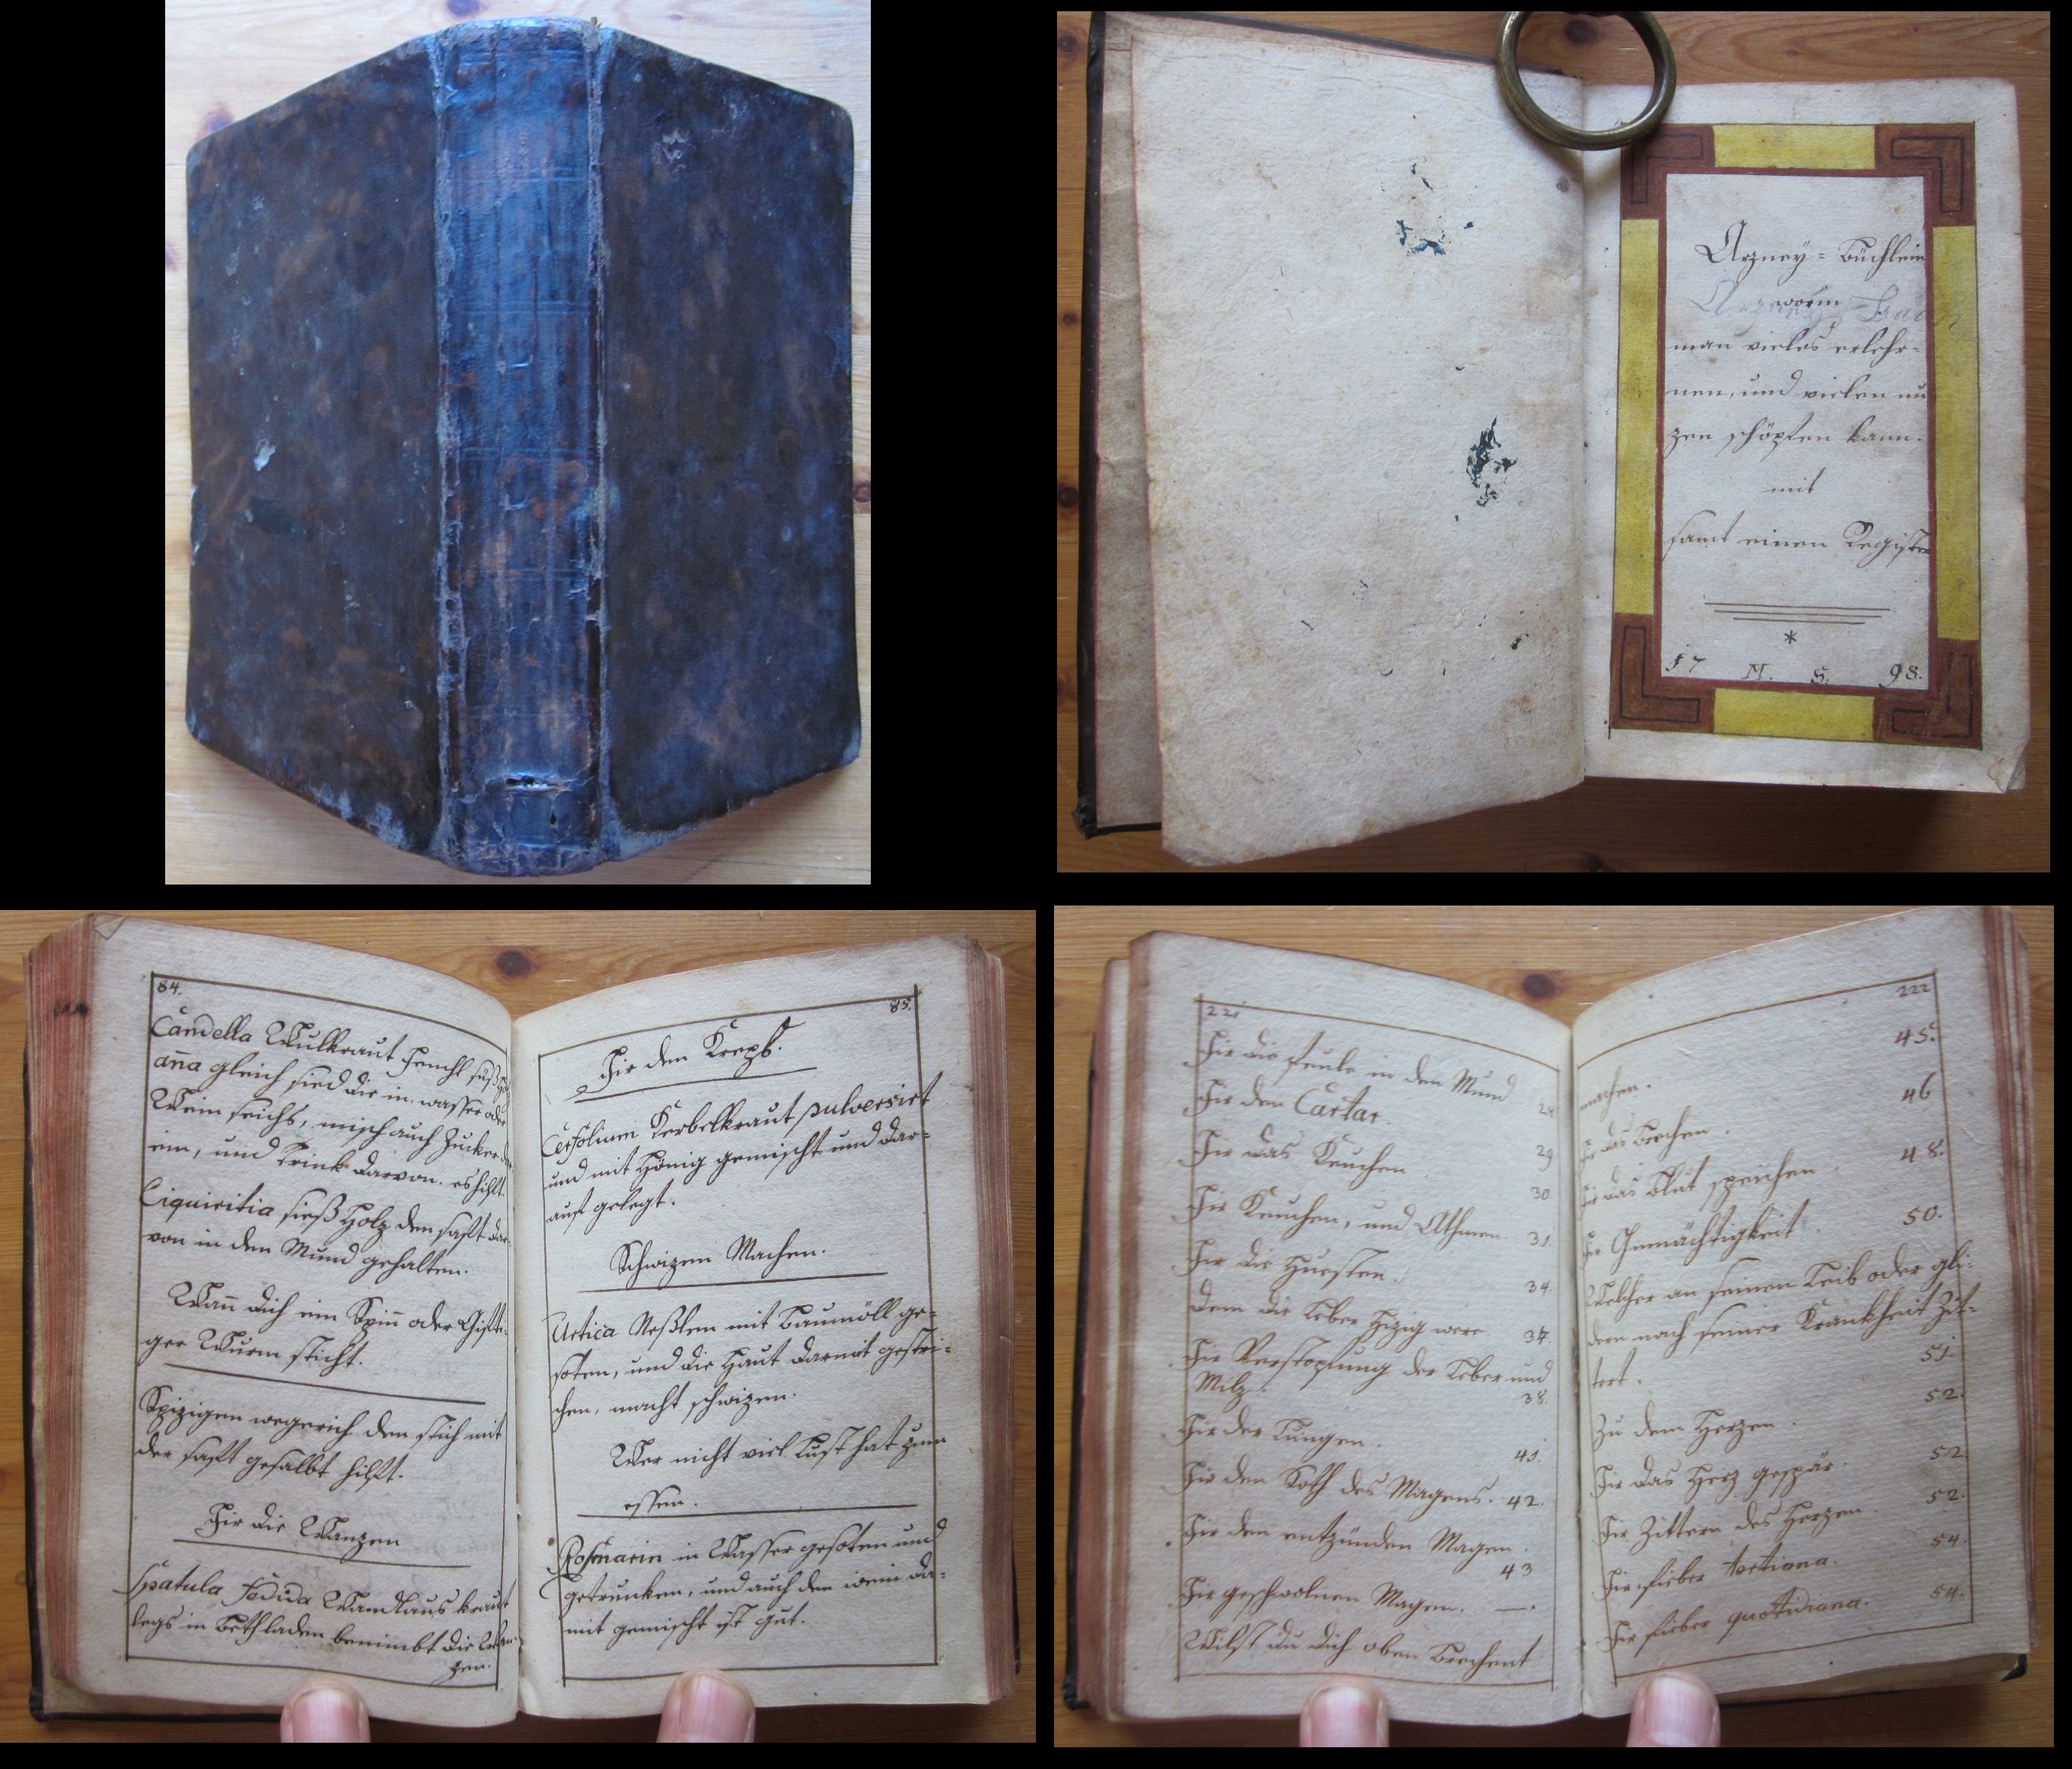 Arzney-Büchlein
worin
man vieles erlehr-
nen, und vielen nu
zen schöpfen kann.
mit
samt einen Register
*
17 M. S. 98.
84.
Candella Wulkraut Fenchl süß
anna gleich sied die in wasser oder
Wein seichs, misch auch Zucker
ein, und Trink darvon. es hilft.
Liquiritia sieß Holz den saft dar-
von in den Mund gehalten.
Wann dich ein Spinn oder Gifti-
ger Wurm sticht.
Spizigen wegerich den stich mit
der saft gesalbt hilft.
Fir die Wanzen
Spatula Fedida Wandlaus kraut
legs in Bethladen benimbt die Wan-
zen.
85.
Fir den Krepß.
Cerfolium Kerbelkraut pulversirt
und mit Hönig gemischt und dar-
auf gelegt.
Schwizen Machen.
Urtica Neßlen mit Baumöll ge-
soten, und die Haut darmit gestri-
chen, macht schwizen.
Wer nicht viel Lust hat zum
essen.
Rosmarin in Wasser gesoten und
getrunken, und auch den wein da-
mit gemischt ist gut.
221
Fir die feule in den Mund 28
Fir den Cartar.
Fir das Keuchen 29
30
Fir Keuchen, und Athmen. 31.
Fir die Huesten. 34.
Dem die Leber Hizig were 37.
Fir Verstopfung der Leber und
Milz. 38.
Fir der Lungen. 41.
Fir den Koth des Magens. 42.
Fir den entzünden Magen.
43
Fir geschwolnen Magen. —.
Wilst du dich oben Brechent
222
machen. 45.
Fir das Brechen. 46
Fir das Blut speichen. 48.
Fir Ohnmächtigkeit. 50.
Welcher an seinen Leib oder gli-
dern nach seiner Krankheit Zit-
tert. 51.
Zu dem Herzen. 52.
Fir das Herz gespär. 52.
Fir Zittern des Herzen. 52.
Fir fieber tertiana. 54.
Fir fieber quotidiana. 54.